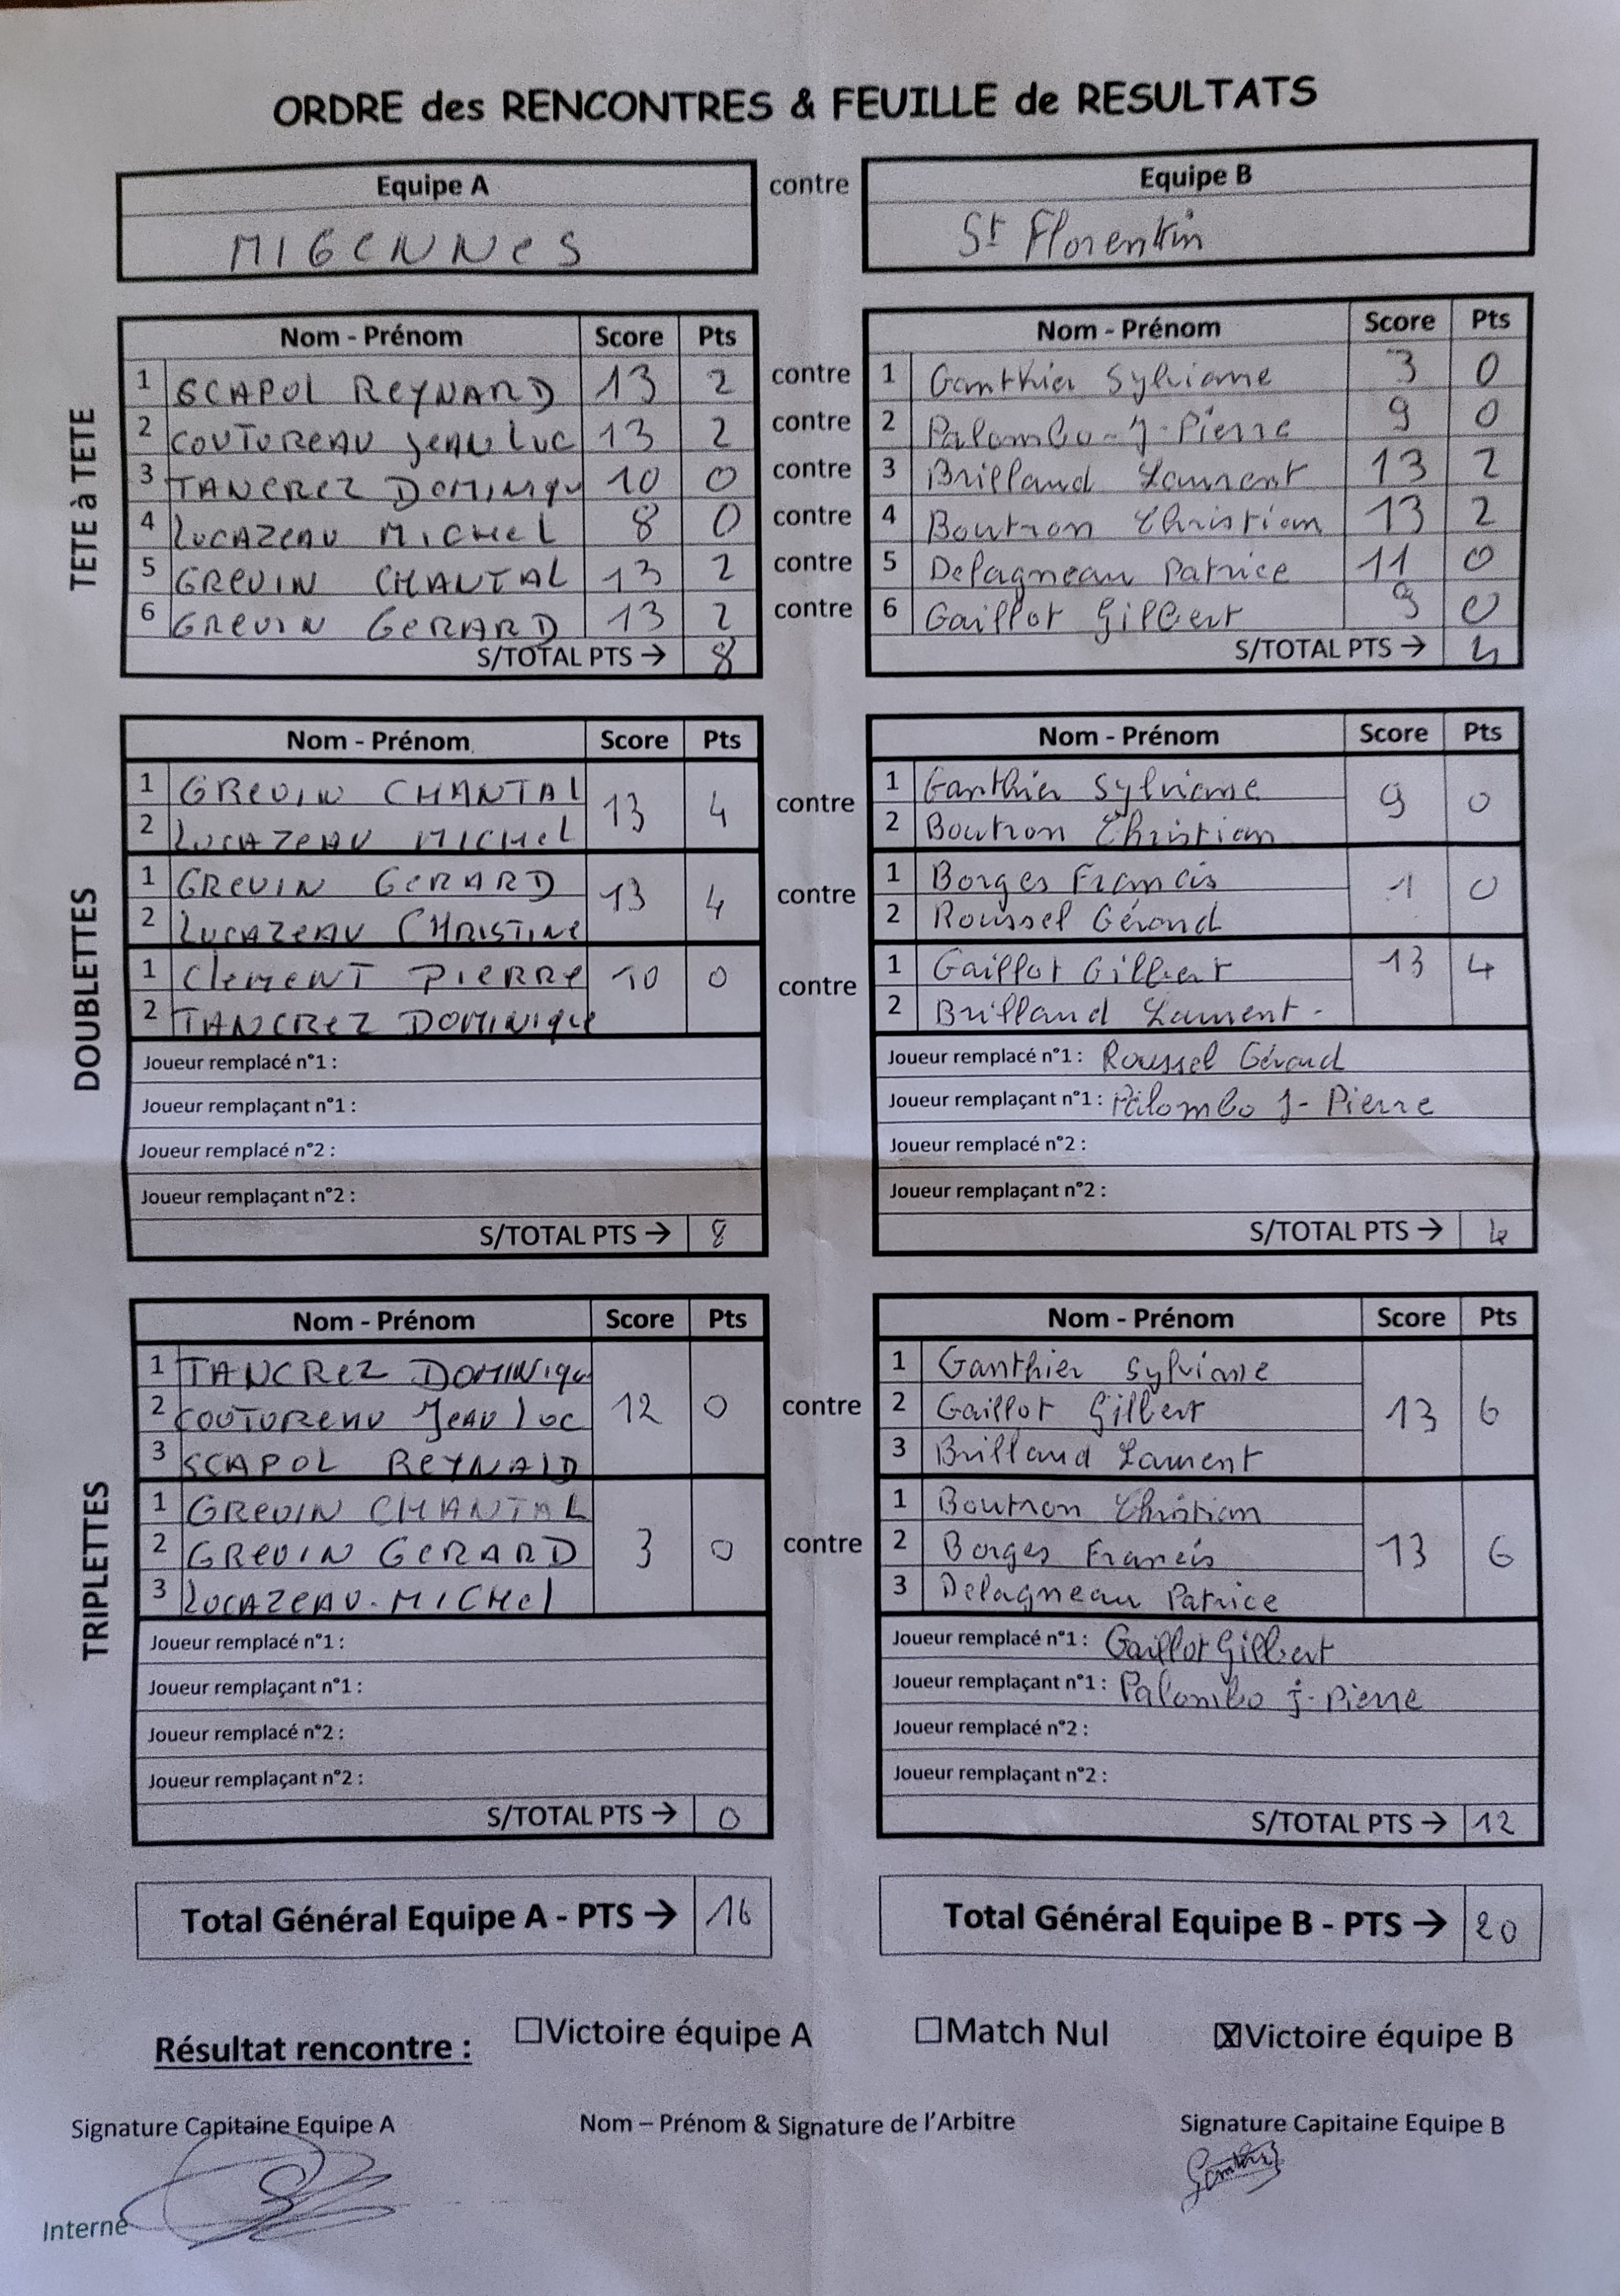 ORDRE des RENCONTRES & FEUILLE de RESULTATS
Equipe A contre Equipe B
MIGENNES St Florentin
TETE à TETE
Nom - Prénom Score Pts Nom - Prénom Score Pts
1 SCAPOL REYNARD 13 2 contre 1 Ganthier Sylviane 3 0
2 COUTUREAU JEAN LUC 13 2 contre 2 Palombo - J-Pierre 9 0
3 TANCREZ DOMINIQU 10 0 contre 3 Brilland Laurent 13 2
4 LUCAZEAU MICHEL 8 0 contre 4 Boutron Christian 13 2
5 GREVIN CHANTAL 13 2 contre 5 Delagneau Patrice 11 0
6 GREVIN GERARD 13 2 contre 6 Gaillot Gilbert 9 0
S/TOTAL PTS → 8 S/TOTAL PTS → 4
DOUBLETTES
Nom - Prénom Score Pts Nom - Prénom Score Pts
1 GREVIN CHANTAL 13 4 contre 1 Ganthier Sylviane 9 0
2 LUCAZEAU MICHEL 2 Boutron Christian
1 GREVIN GERARD 13 4 contre 1 Borges Francis 1 0
2 LUCAZEAU CHRISTINE 2 Roussel Gérard
1 CLEMENT PIERRE 10 0 contre 1 Gaillot Gilbert 13 4
2 TANCREZ DOMINIQUE 2 Brilland Laurent -
Joueur remplacé n°1 : Joueur remplacé n°1 : Roussel Gérard
Joueur remplaçant n°1 : Joueur remplaçant n°1 : Palombo J- Pierre
Joueur remplacé n°2 : Joueur remplacé n°2 :
Joueur remplaçant n°2 : Joueur remplaçant n°2 :
S/TOTAL PTS → 8 S/TOTAL PTS → 4
TRIPLETTES
Nom - Prénom Score Pts Nom - Prénom Score Pts
1 TANCREZ DOMINIQU 1 Ganthier Sylviane
2 COUTUREAU JEAN LUC 12 0 contre 2 Gaillot Gilbert 13 6
3 SCAPOL REYNALD 3 Brilland Laurent
1 GREVIN CHANTAL 1 Boutron Christian
2 GREVIN GERARD 3 0 contre 2 Borges Francis 13 6
3 LUCAZEAU. MICHEL 3 Delagneau Patrice
Joueur remplacé n°1 : Joueur remplacé n°1 : Gaillot Gilbert
Joueur remplaçant n°1 : Joueur remplaçant n°1 : Palombo j-Pierre
Joueur remplacé n°2 : Joueur remplacé n°2 :
Joueur remplaçant n°2 : Joueur remplaçant n°2 :
S/TOTAL PTS → 0 S/TOTAL PTS → 12
Total Général Equipe A - PTS → 16 Total Général Equipe B - PTS → 20
Résultat rencontre : ☐Victoire équipe A ☐Match Nul ☒Victoire équipe B
Signature Capitaine Equipe A Nom – Prénom & Signature de l'Arbitre Signature Capitaine Equipe B
Interne